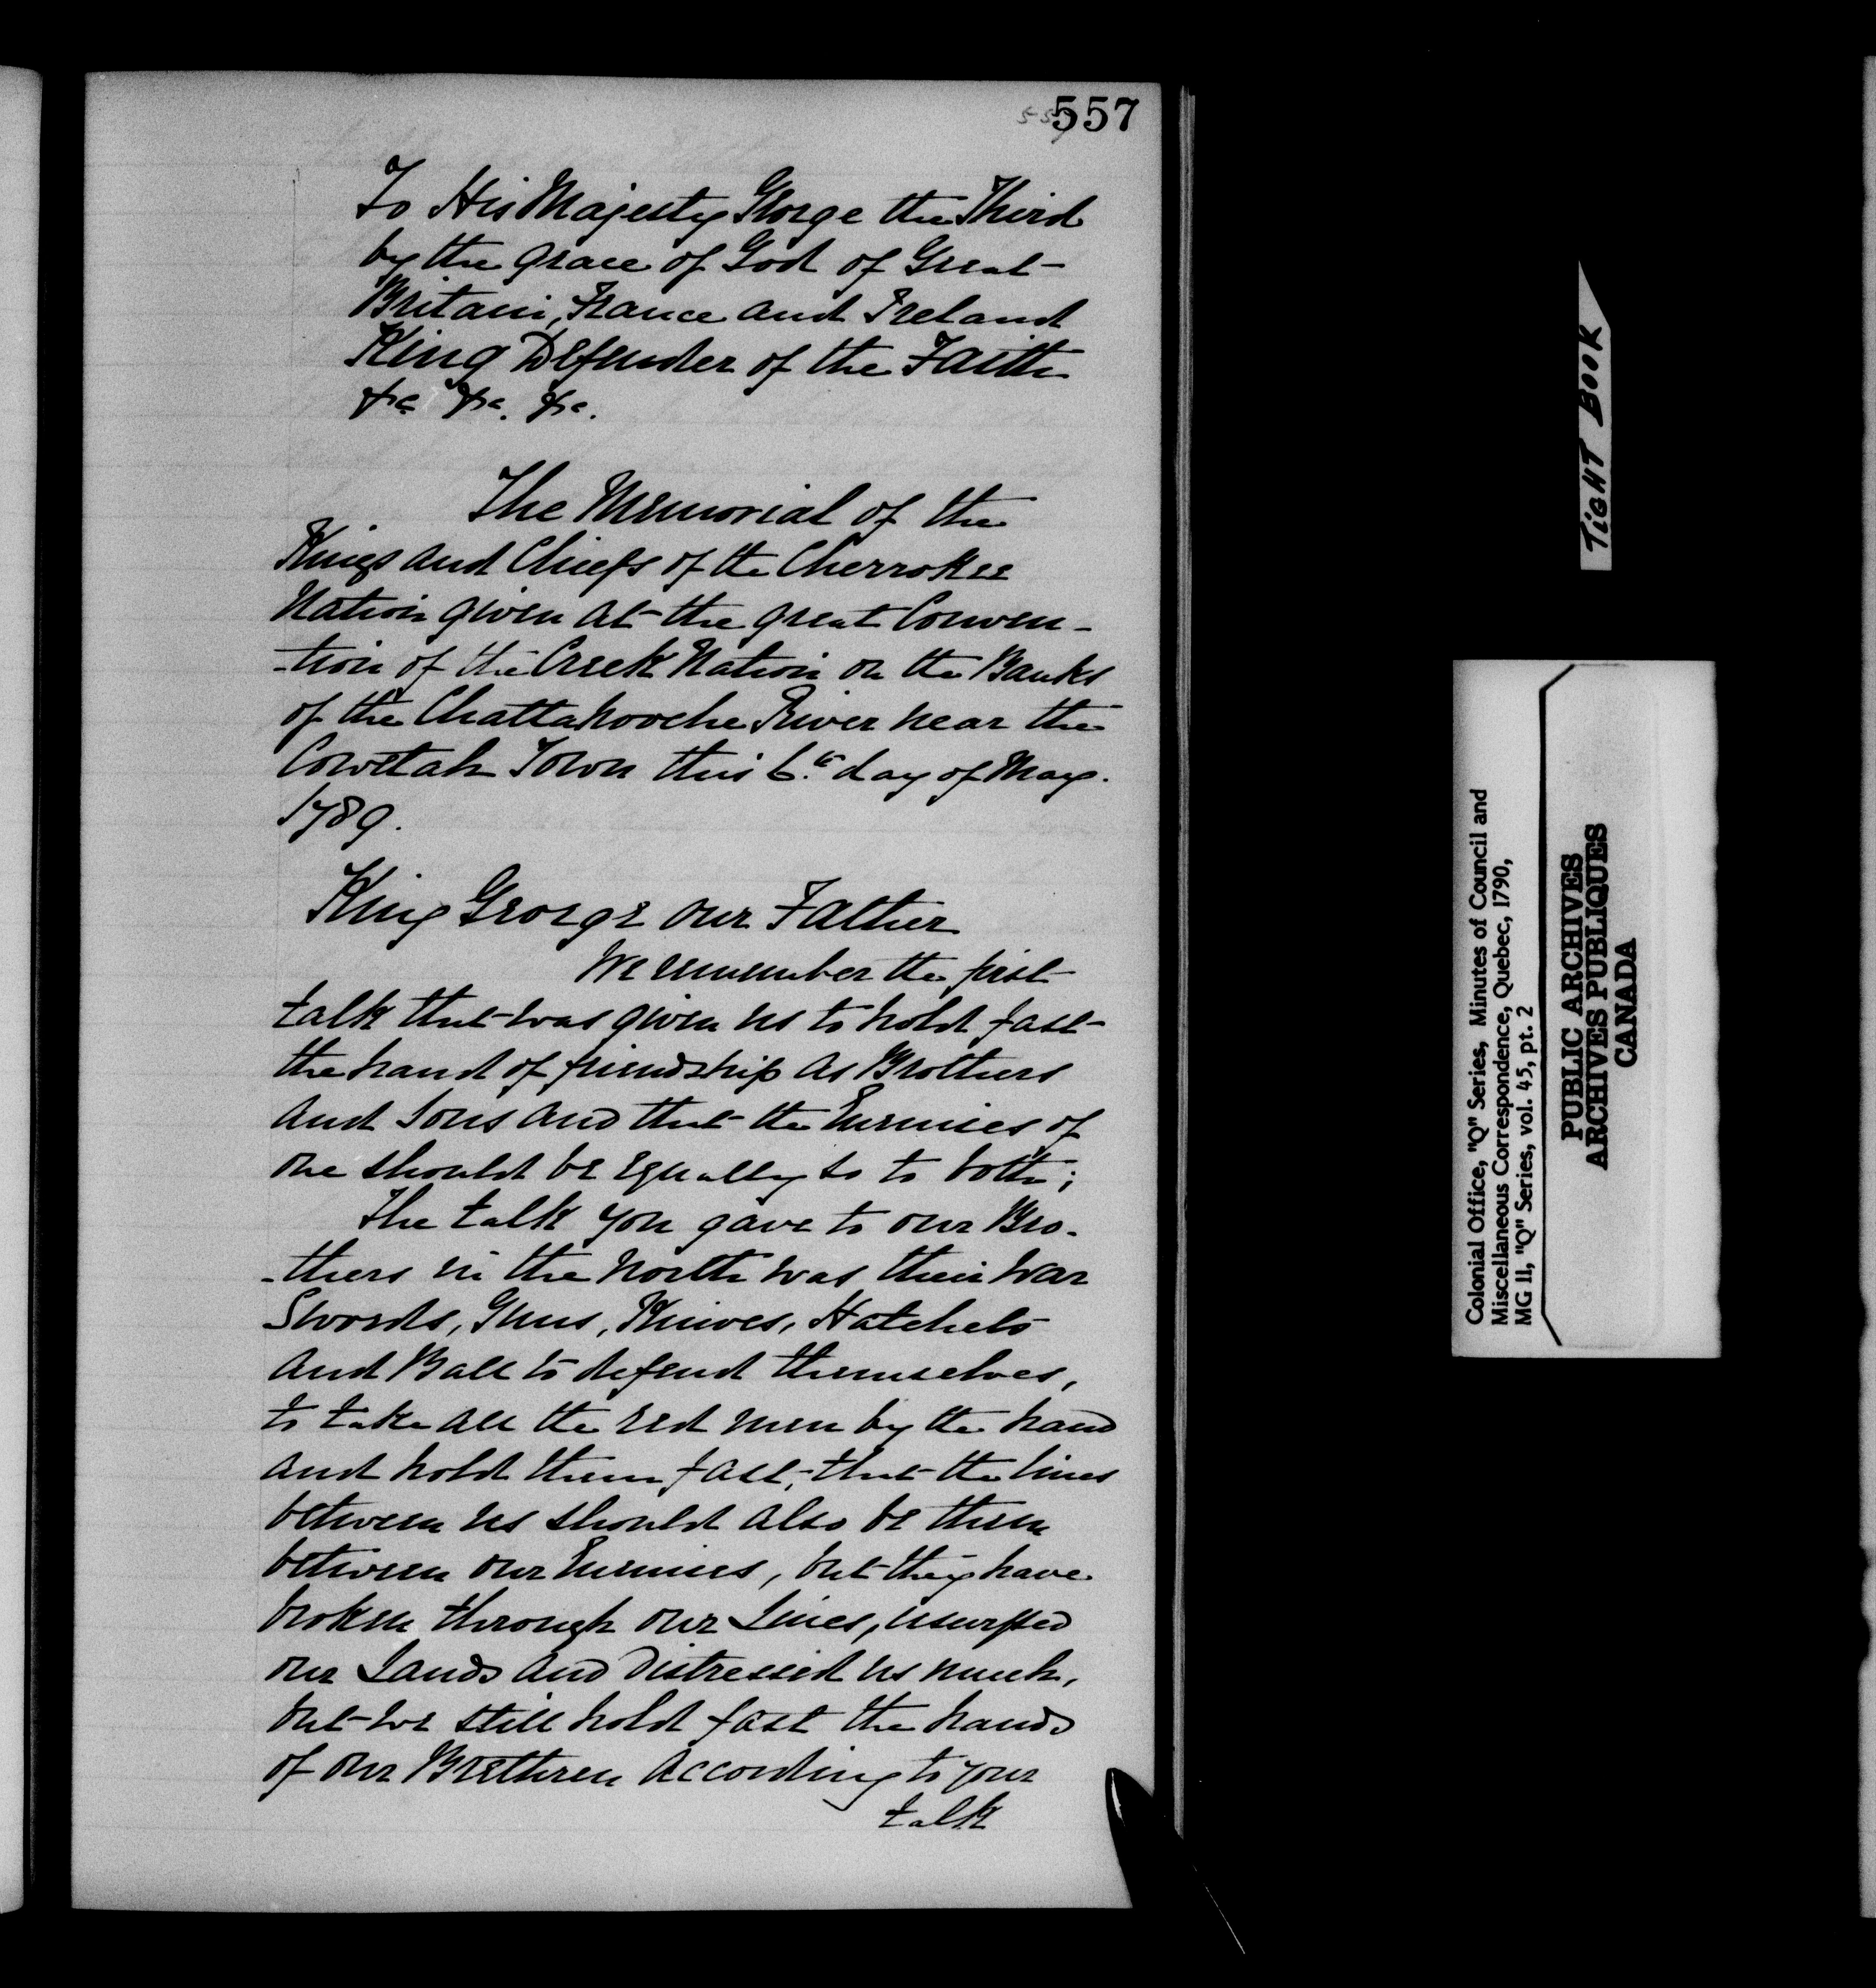 557
To His Majesty George the Third
by the grace of God of Great
Britain, France and Ireland
King Defender of the Faith
&c &c. &c.
The Memorial of the
Kings and Chiefs of the Cherrokee
Nation given at the great Conven-
-tion of the Creek Nation on the Banks
of the Chattahooche River near the
Cowetah Town this 6th day of May.
1789.
King George our Father
We remember the first
talk that was given us to hold fast
the hand of friendship as Brothers
and Sons and that the Enemies of
one should be equally so to both;
The talk you gave to our Bro-
-thers in the North was their war
Swords, Guns, Knives, Hatchets
and Ball to defend themselves,
to take all the red men by the hand
and hold them fast, that the lines
between us should also be them
between our Enemies, but they have
broken through our Lines, usurped
our Lands and distressed us much,
but we still hold fast the hands
of our Brethren according to your
talk
TIGHT BOOK
Colonial Office, "Q" Series, Minutes of Council and
Miscellaneous Correspondence, Quebec, 1790,
MG 11, "Q" Series, vol. 45, pt. 2
PUBLIC ARCHIVES
ARCHIVES PUBLIQUES
CANADA